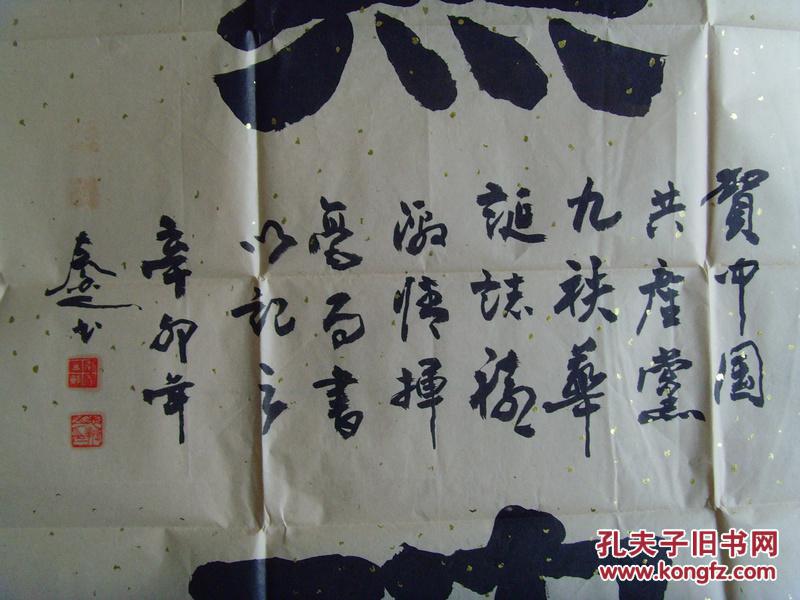 賀中国
共產黨
九袟華
誕誌禧
激情揮
毫而書
以記之
辛卯年
孔夫子旧书网
www.kongfz.com